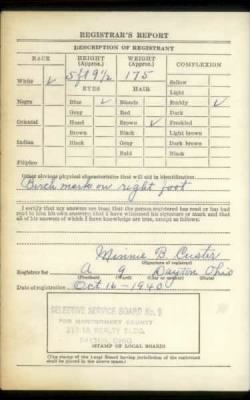 REGISTRAR'S REPORT
DESCRIPTION OF REGISTRANT
RACE HEIGHT (Approx.) WEIGHT (Approx.) COMPLEXION
White ✓ 5 ft 9½ 175 Sallow
EYES HAIR Light
Negro Blue ✓ Blonde Ruddy ✓
Gray Red Dark
Oriental Hazel Brown ✓ Freckled
Brown Black Light brown
Indian Black Gray Dark brown
Bald Black
Filipino
Other obvious physical characteristics that will aid in identification
Birch mark on right foot
I certify that my answers are true; that the person registered has read or has had
read to him his own answers; that I have witnessed his signature or mark and that
all of his answers of which I have knowledge are true, except as follows:
Minnie B. Custer
(Signature of registrar)
Registrar for A 9 Dayton Ohio
(Precinct) (Ward) (City or county) (State)
Date of registration Oct 16 - 1940
SELECTIVE SERVICE BOARD No. 9
FOR MONTGOMERY COUNTY
REALTY BLDG.
DAYTON, OHIO
(STAMP OF LOCAL BOARD)
(The stamp of the Local Board having jurisdiction of the registrant
shall be placed in the above space.)